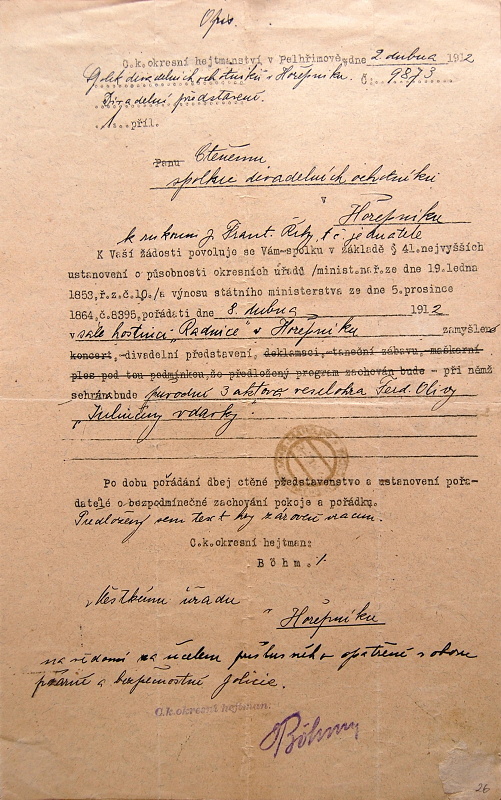 Opis.
C.k.okresní hejtmanství v Pelhřimově, dne 2. dubna 1912
Spolek divadelních ochotníků v Hořepníku. Č. 9873
Divadelní představení.
1 příl.
Panu Ctěnému
spolku divadelních ochotníků
v
Hořepníku
k rukoum p. Frant. Řihy, t.č. jednatele
K Vaší žádosti povoluje se Vám-spolku v základě § 41.nejvyšších
ustanovení o působnosti okresních úřadů /minist.nař.ze dne 19.ledna
1853,ř.z.č.10./a výnosu státního ministerstva ze dne 5.prosince
1864,č.8395,pořádati dne 8. dubna 1912
v sále hostince „Radnice" v Hořepníku zamýšlené
koncert,-divadelní představení,-deklamaci,-taneční zábavu,-maškarní
ples pod tou podmínkou,že předložený program zachován bude - při němž
sehrána bude původní 3 aktová veselohra Ferd. Olivy
„Julinčiny vdavky".
Po dobu pořádání dbej ctěné představenstvo a ustanovení pořa-
datelé o bezpodmínečné zachování pokoje a pořádku.
Předložený sem text hry zároveň vracím.
C.k.okresní hejtman:
Böhm ./.
Městkému úřadu
v Hořepníku
na vědomí za účelem příslušného opatření s oboru
požární a bezpečnostní policie.
C.k.okresní hejtman:
Böhm
26